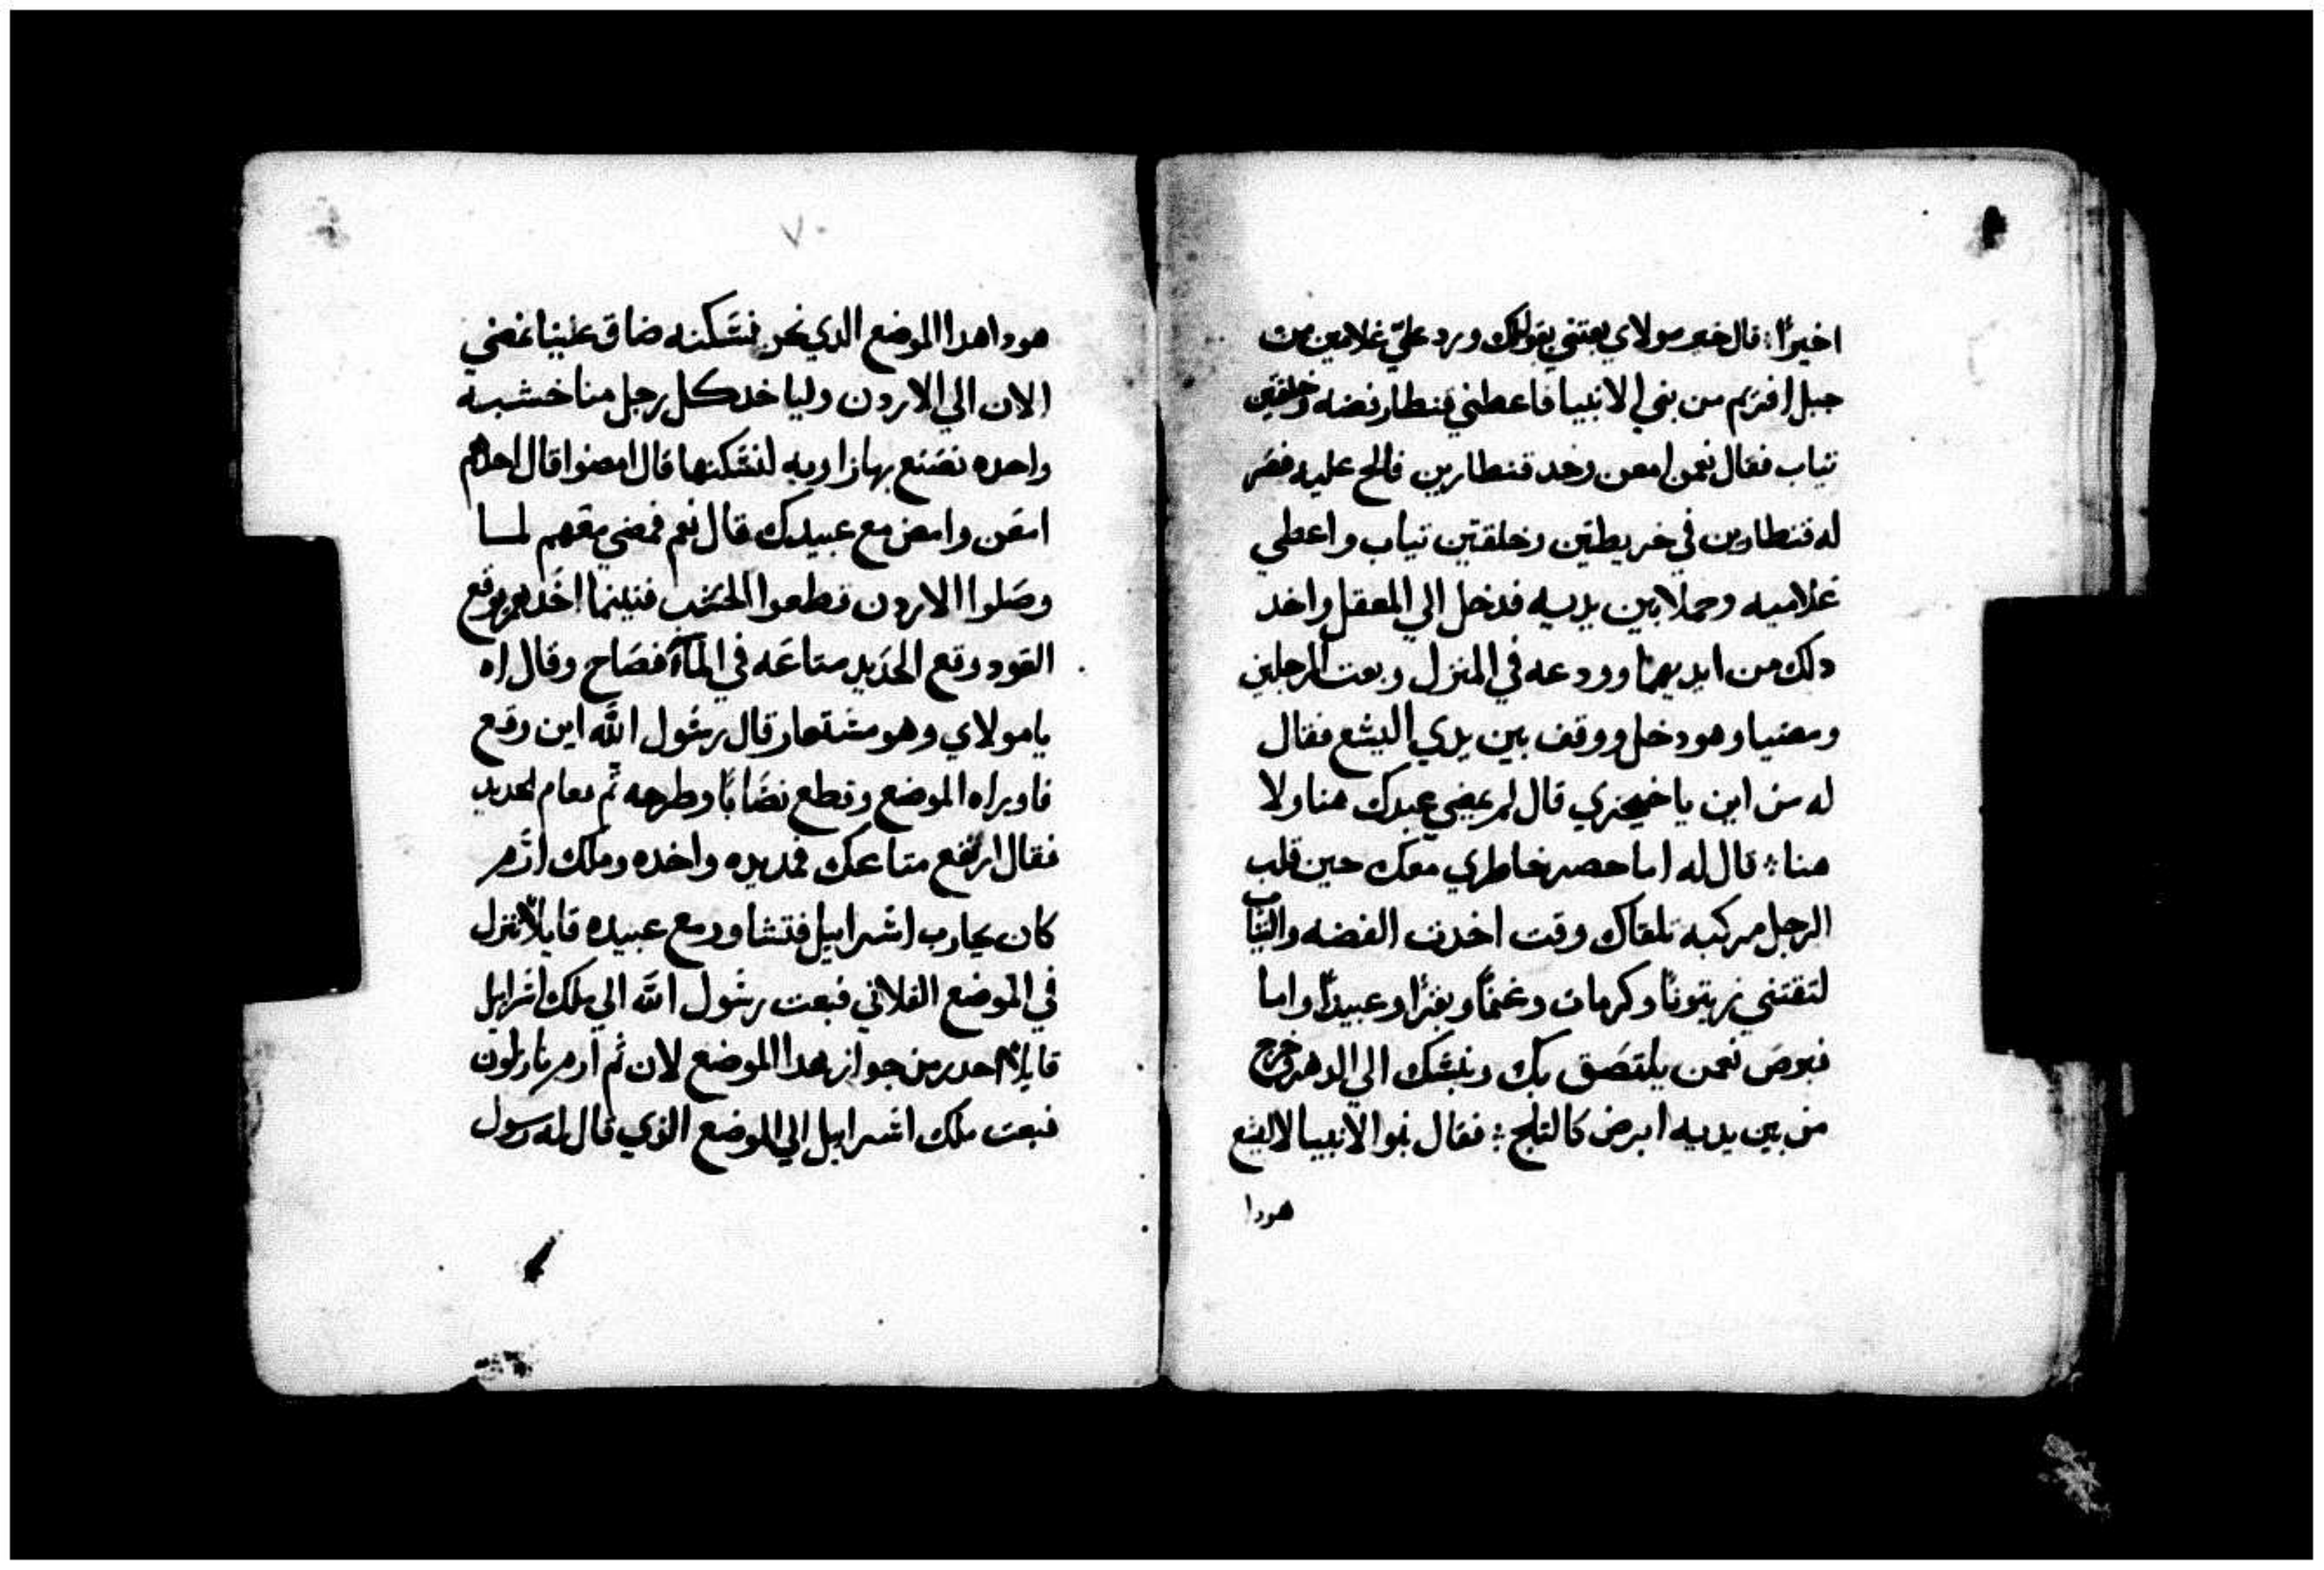 اخيرًا: قال خير مولاي بعتني يقولك ورد عليّ غلامين من
جبل افريم من بني الانبيا فاعطني قنطار فضه وخلقتين
تياب فقال نعمن امعن وخد قنطارين فالح عليه فصر
له قنطارين في خريطتين وخلقتين تياب واعطي
غلاميه وحملا بين يديه فدخل الي المعقل واخد
دلك من ايديهما وودعه في المنزل وبعت الرجلين
ومضيا وهو دخل ووقف بين يدي اليشع فقال
له من اين يا خيحزي قال لم يمضي عبدك هنا ولا
هنا ؞ قال له اما حصر خاطري معك حين قلب
الرجل مركبه تلقاك وقت اخدت الفضه والتياب
لتقتني زيتونًا وكرمات وغنمًا وبقرًا وعبيدًا واما
فبرص نعمن يلتصق بك ونسلك الي الدهر فخرج
من بين يديه ابرص كالتلج ؞ فقال بنو الانبيا لاليشع
هودا
٧٠
هودا هدا الموضع الدي نحن نسكنه ضاق علينا نمضي
الان الي الاردن ولياخد كل رجل منا خشبه
واحده نصنع بها زاويه لنسكنها قال امضوا قال احدهم
امعن وامض مع عبيدك قال نعم فمضي معهم لما
وصلوا الاردن قطعوا الخشب فبينما احدهم يرفع
العود وقع الحديد متاعه في المآء فصاح وقال اه
يا مولاي وهو مستعار قال رسول الله اين وقع
فاوراه الموضع وقطع نصابًا وطرحه ثم فعام الحديد
فقال ارفع متاعك فمد يده واخده وملك ارم
كان يحارب اسراييل فتشاور مع عبيده قايلًا ننزل
في الموضع الفلاني فبعت رسول الله الي ملك اسراييل
قايلًا احدر من جواز هدا الموضع لان ثم ارم نازلون
فبعت ملك اسراييل الي الموضع الذي قال له رسول